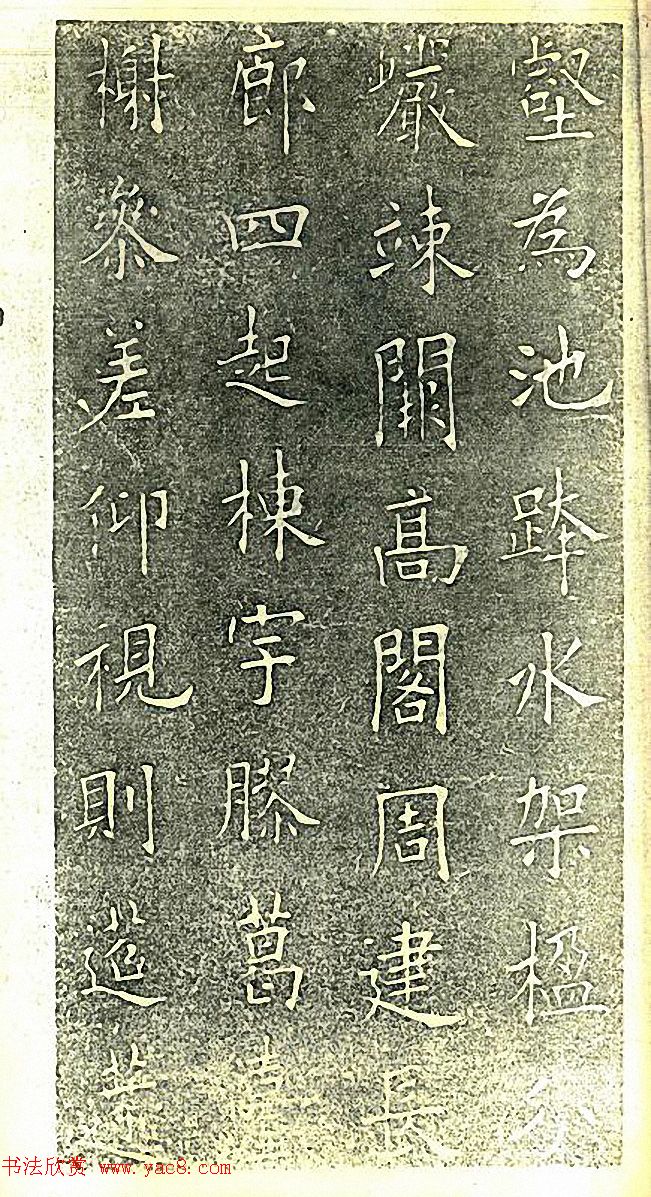 壑為池跨水架楹分
巖竦闕高閣周建長
廊四起棟宇膠葛臺
榭參差仰視則迢遰
书法欣赏 www.yac8.com